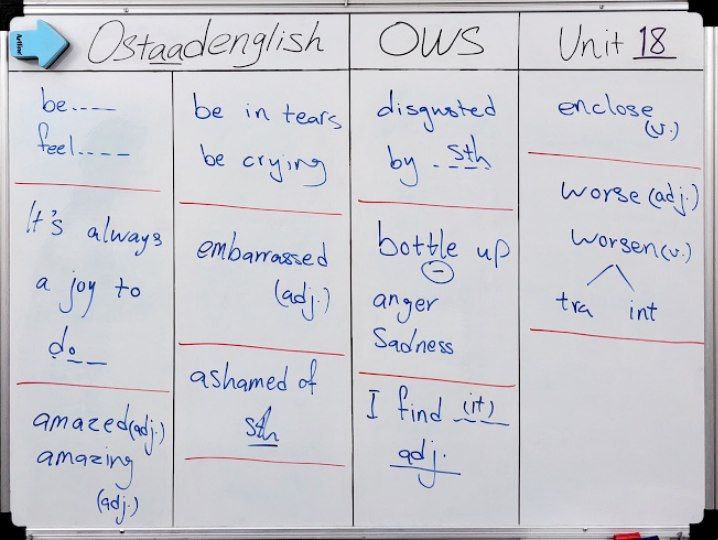 Ostaadenglish
OWS
Unit 18
be....
feel....
It's always
a joy to
do__
amazed(adj.)
amazing
(adj.)
be in tears
be crying
embarrassed
(adj.)
ashamed of
sth
disgusted
by sth
bottle up
(-)
anger
Sadness
I find (it)
adj.
enclose
(v.)
worse (adj.)
worsen (v.)
tra int